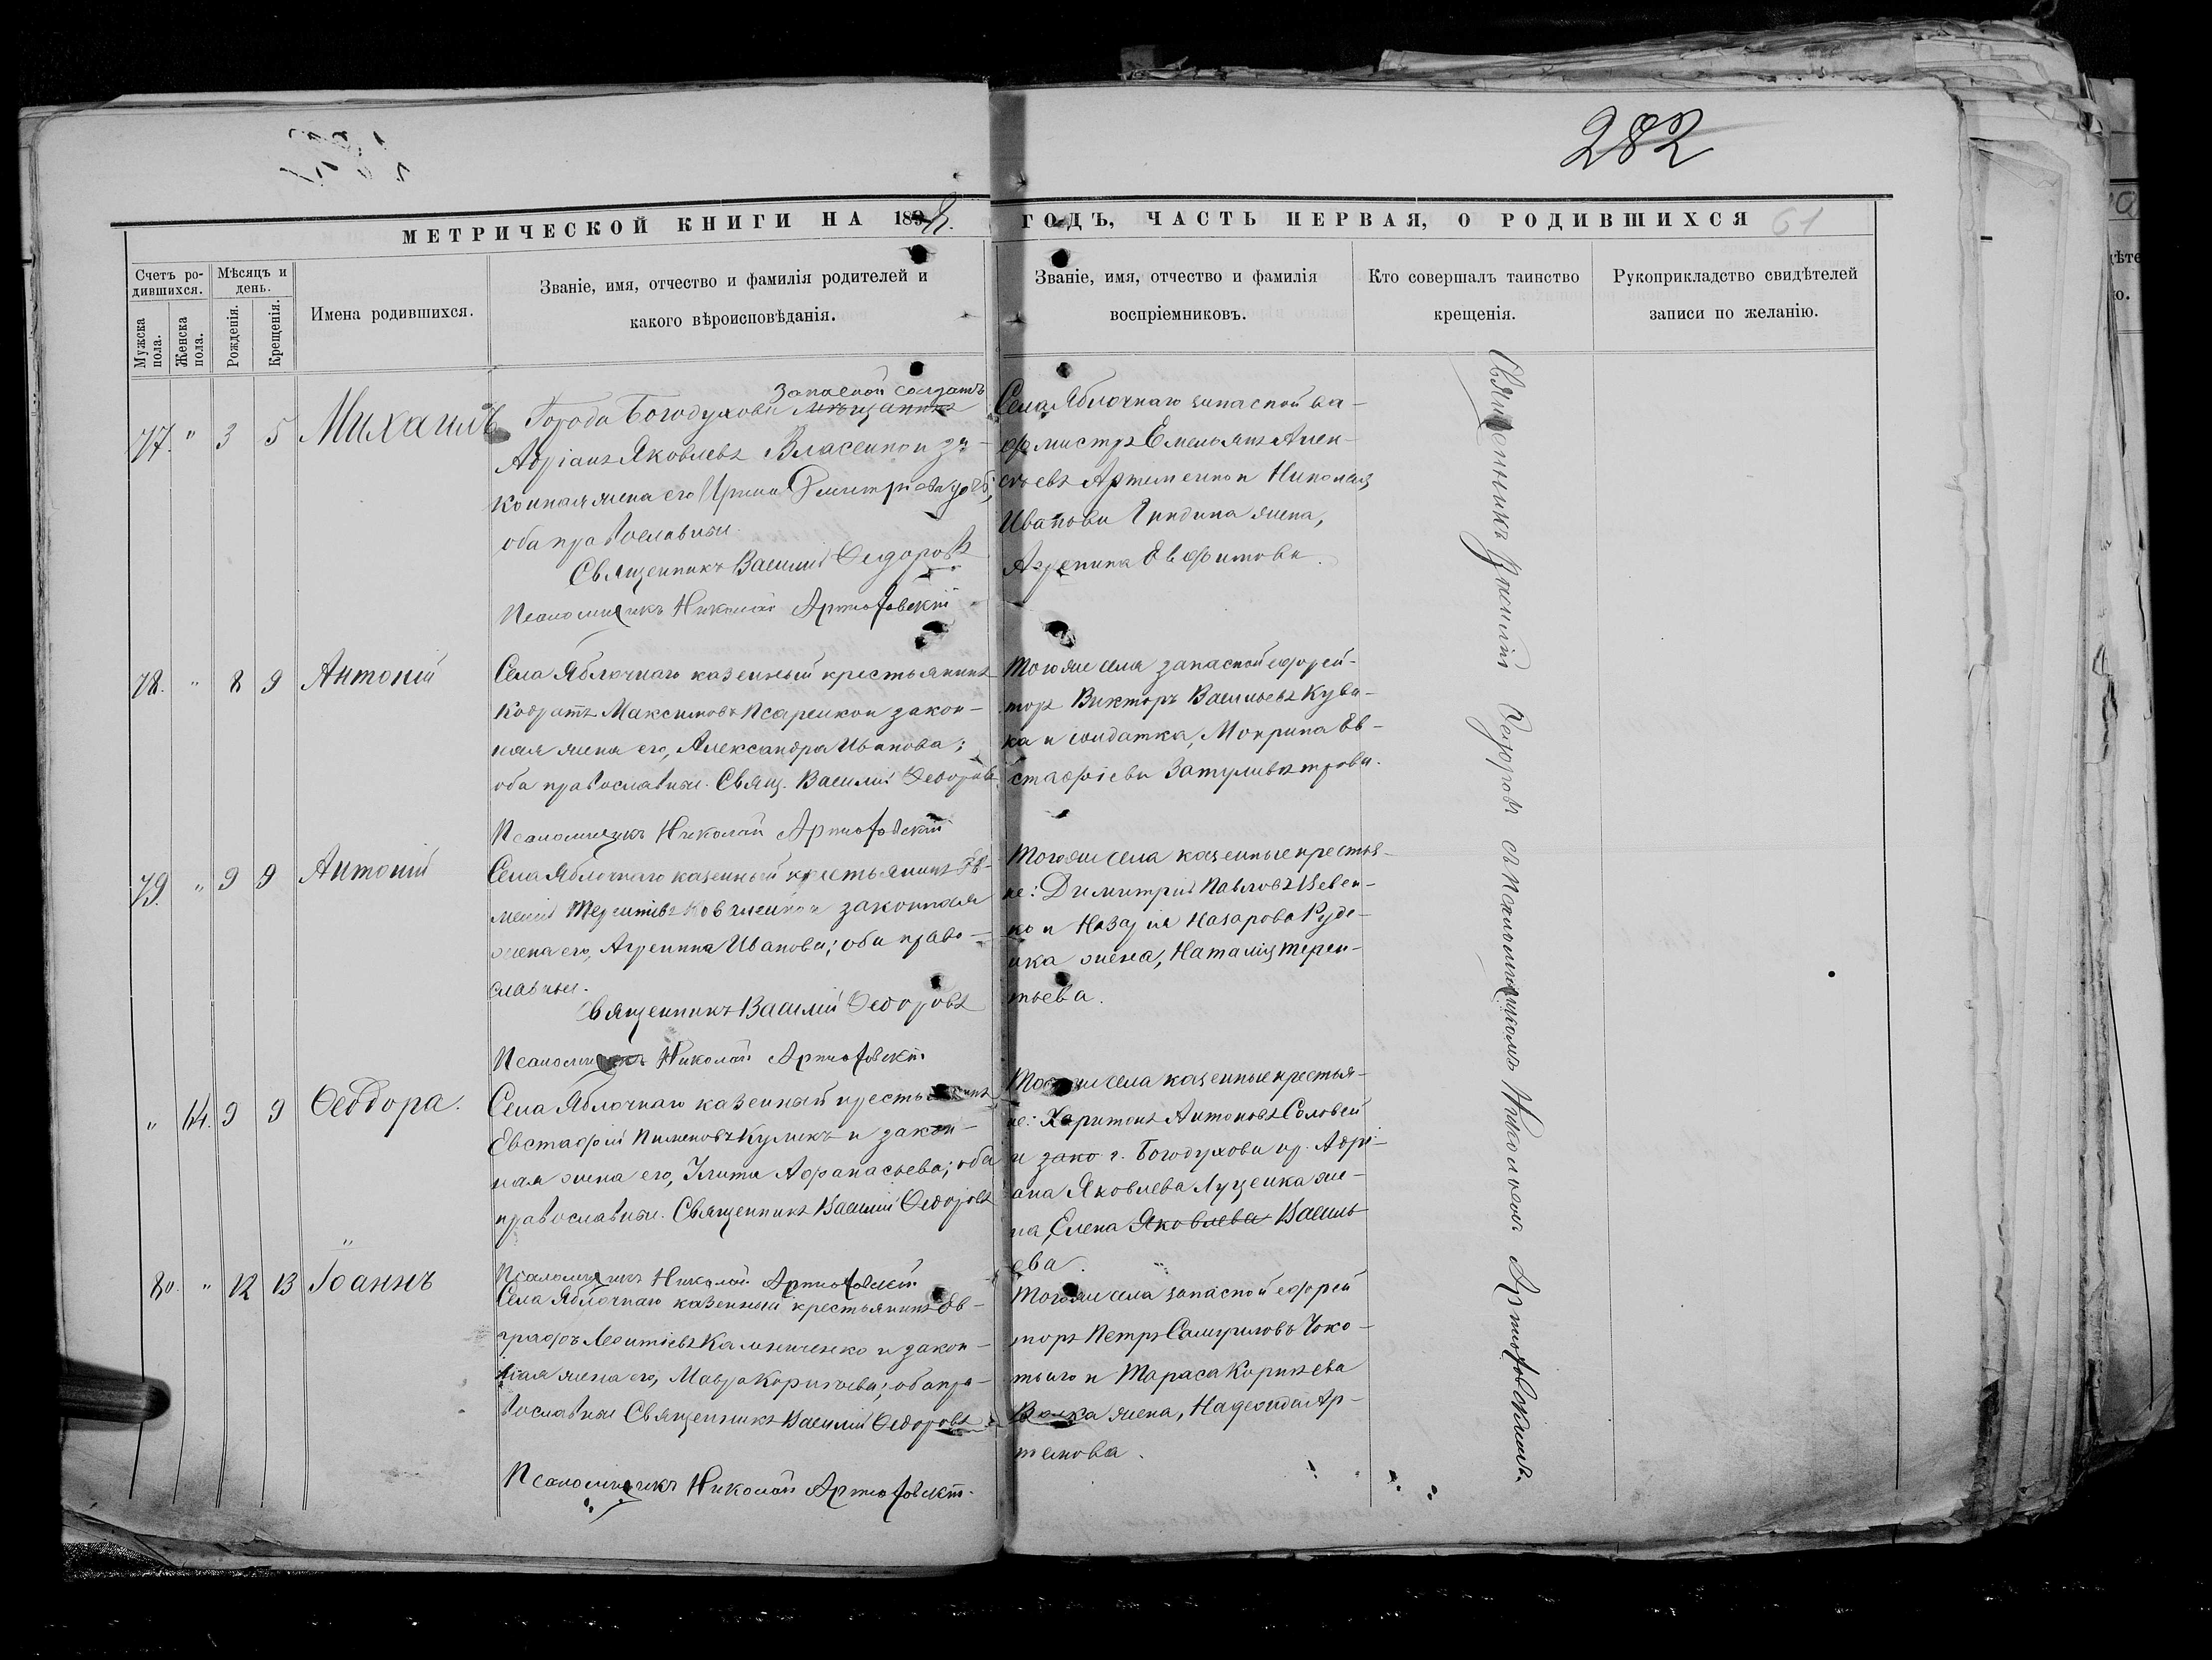 282
МЕТРИЧЕСКОЙ КНИГИ НА 189
ГОДЪ, ЧАСТЬ ПЕРВАЯ, О РОДИВШИХСЯ
61
Счетъ ро-
дившихся.
Мужска
пола.
Женска
пола.
Мѣсяцъ и
день.
Рожденія.
Крещенія.
Имена родившихся.
Званіе, имя, отчество и фамилія родителей и
какого вѣроисповѣданія.
Званіе, имя, отчество и фамилія
воспріемниковъ.
Кто совершалъ таинство
крещенія.
Рукоприкладство свидѣтелей
записи по желанію.
77. " 3 5 Михаилъ
Запасной солдатъ
Города Богодухова мѣщанинъ
Адріанъ Яковлевъ Власенко и за-
конная жена его Ирина Димитріева
оба православные.
Священникъ Василій Ѳедоровъ
Псаломщикъ Николай
Села Яблочнаго запасной ва-
хмистръ Емельянъ Алек-
сѣевъ Артеменко и Николая
Иванова жена,
Агрепина Евфимова.
78. " 8 9 Антоній
Села Яблочнаго казенный крестьянинъ
Кодратъ Максимовъ Псаренко и закон-
ная жена его, Александра Иванова;
оба православные. Свящ. Василій Ѳедоровъ
Псаломщикъ Николай
Тогоже села запасной ефрей-
торъ Викторъ Васильевъ Кув-
ка и солдатка, Мокрина Ев-
стафіева
79. " 9 9 Антоній
Села Яблочнаго казенный крестьянинъ Ев-
меній и законная
жена его, Агрепина Иванова; оба право-
славные.
Священникъ Василій Ѳедоровъ
Псаломщикъ Николай
Тогоже села казенные крестья-
не: Димитрій Павловъ Шевен-
ко и Назарія Назарова Руде-
нка жена, Наталія Терен-
тьева.
" 64. 9 9 Ѳеодора.
Села Яблочнаго казенный крестьянинъ
Евстафій Пименовъ Куликъ и закон-
ная жена его, Улита Афанасьева; оба
православные. Священникъ Василій Ѳедоровъ
Псаломщикъ Николай
Тогоже села казенные крестья-
не: Харитонъ Антоновъ Соловей
и зако г. Богодухова кр. Адрі-
ана Яковлева Луценка же-
на, Елена Яковлева Василь
ева.
80. " 12 13 Іоаннъ
Села Яблочнаго казенный крестьянинъ Ев-
графъ Леонтіевъ Калениченко и закон-
ная жена его, Мавра Корнѣева; оба пра-
вославные Священникъ Василій Ѳедоровъ
Псаломщикъ Николай
Тогоже села запасной ефрей
торъ Петръ Самуиловъ Чхо-
тьяго и Тараса Корнѣева
Волка жена, Надежда Ар-
темова.
Священникъ Василій Ѳедоровъ съ псаломщикомъ Николаемъ